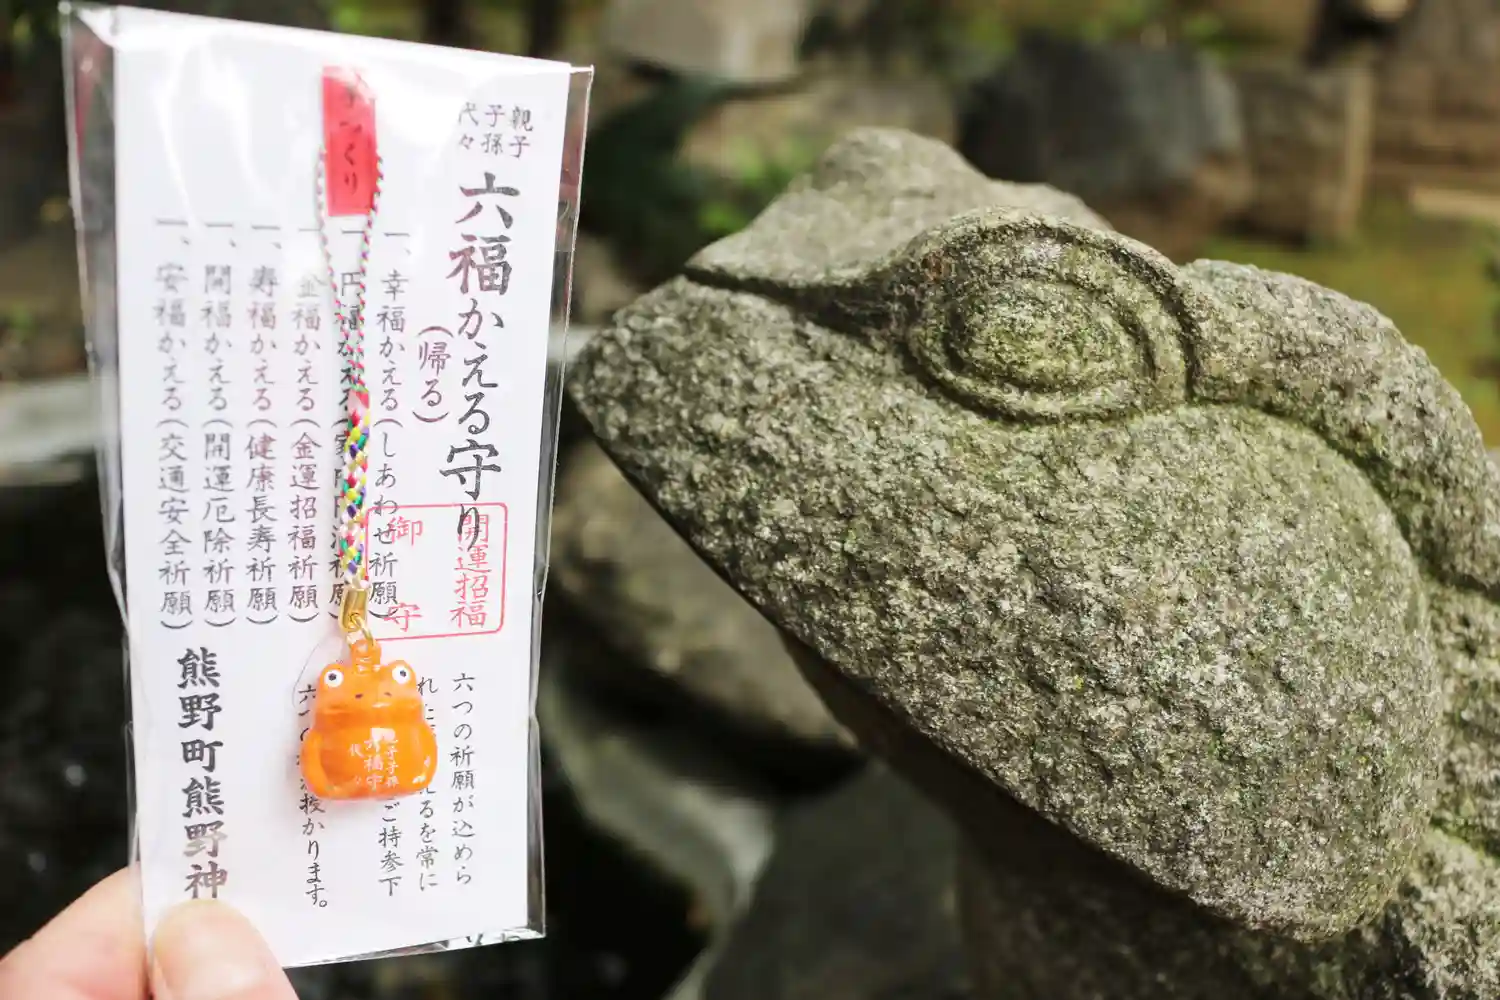 親子
子孫
代々
六福かえる守り
（帰る）
一、幸福かえる（しあわせ祈願）
一、円福かえる（家内円満祈願）
一、金福かえる（金運招福祈願）
一、寿福かえる（健康長寿祈願）
一、開福かえる（開運厄除祈願）
一、安福かえる（交通安全祈願）
開運招福
御守
六つの祈願が込めら
るを常に
ご持参下
授かります。
熊野町熊野神